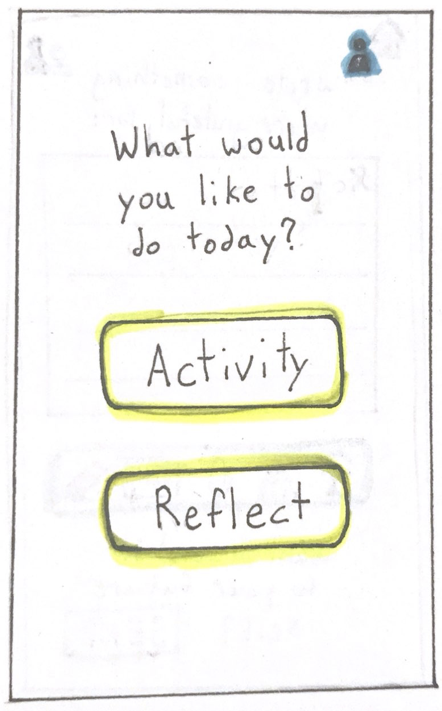 What would
you like to
do today?
Activity
Reflect